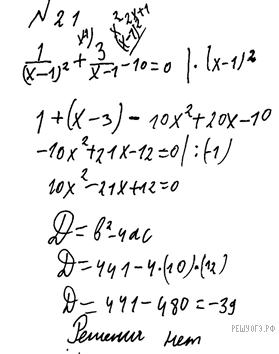 № 21
x² - 2x + 1
(x-1) (x-1)²
1/(x-1)² + 3/(x-1) - 10 = 0 | · (x-1)²
1 + (x - 3) - 10x² + 20x - 10
-10x² + 21x - 12 = 0 | : (-1)
10x² - 21x + 12 = 0
D = b² - 4ac
D = 441 - 4 · (10) · (12)
D = 441 - 480 = -39
Решения нет
РЕШУОГЭ.РФ